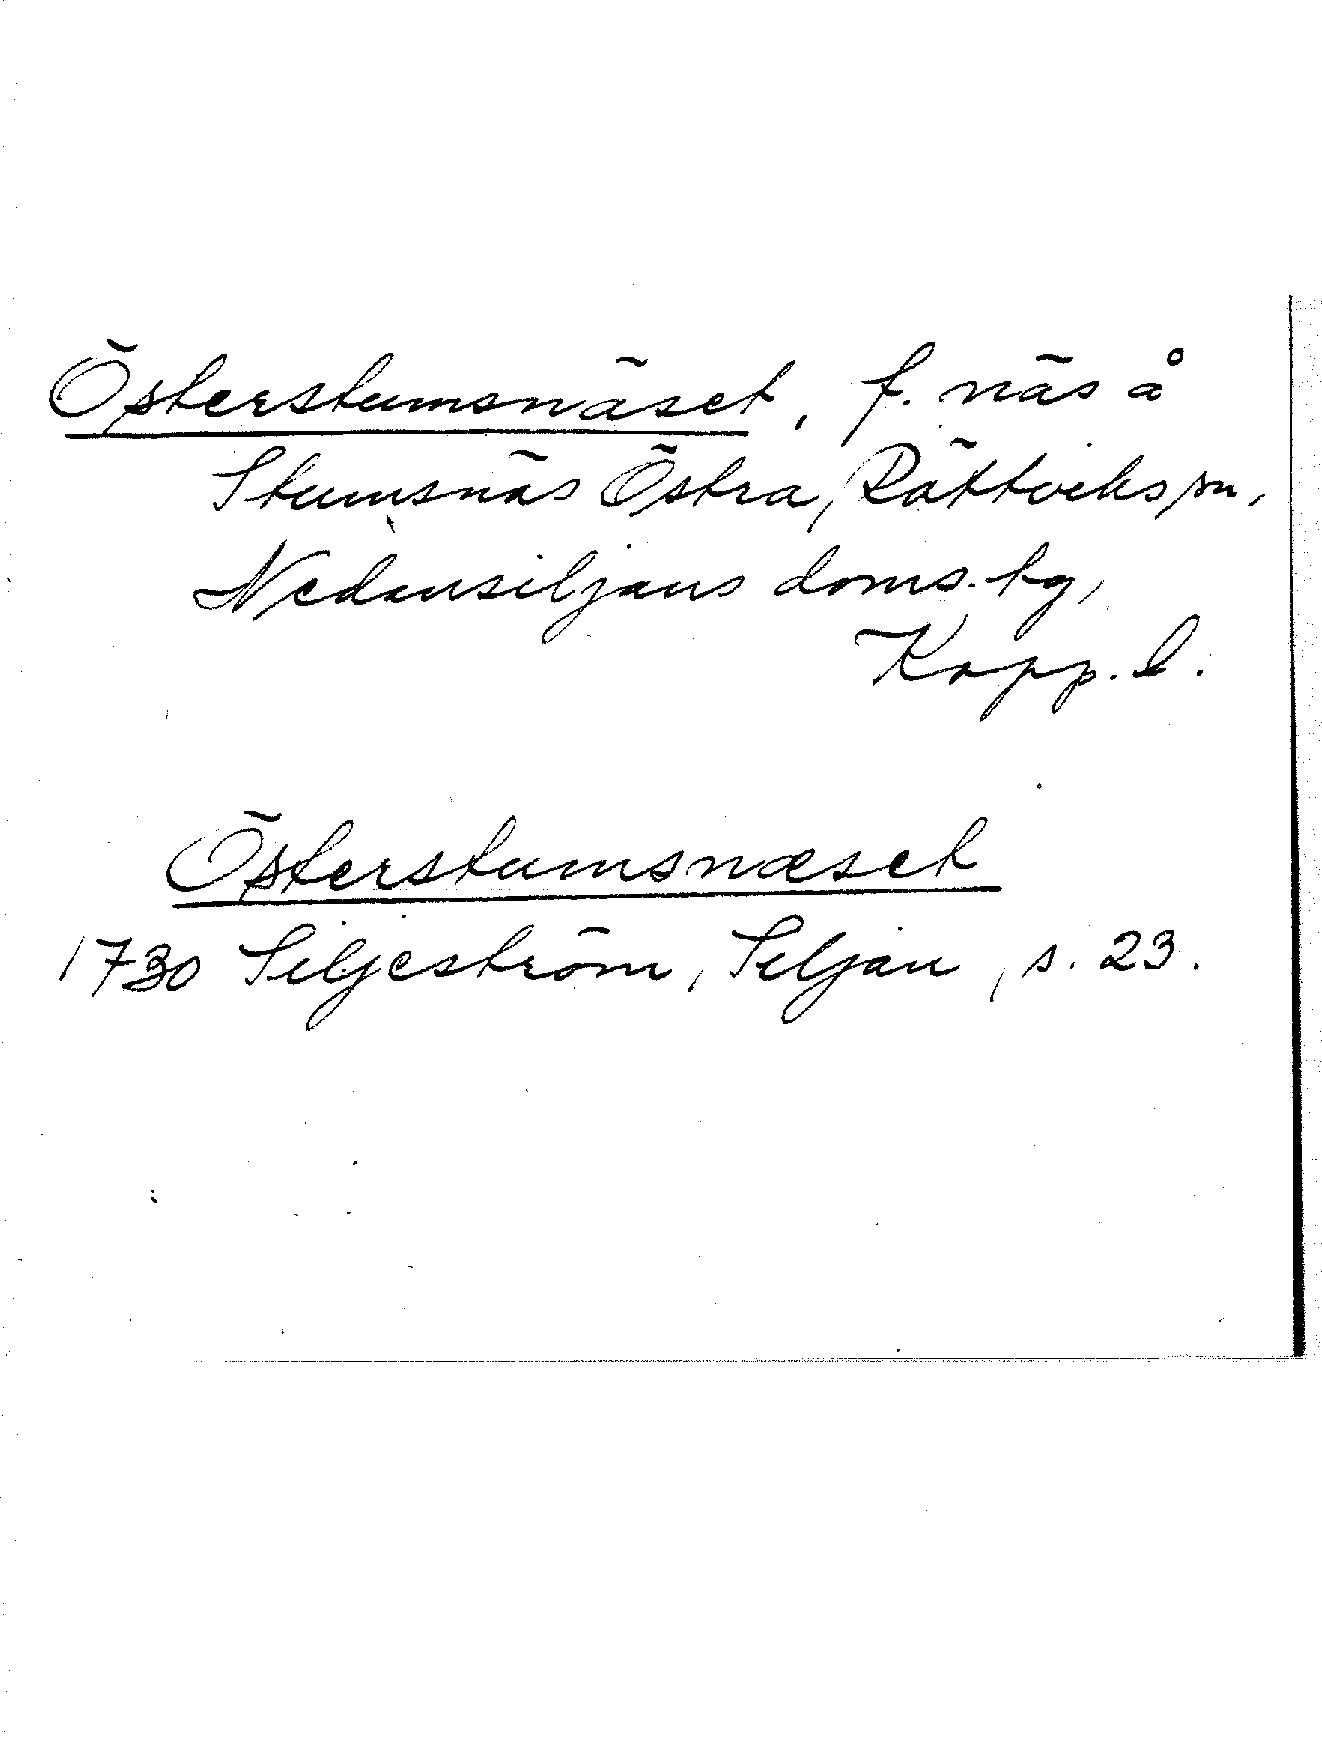 Österstumsnäset, f. näs å
Stumsnäs Östra, Rättviks sn,
Nedansiljans doms. hg,
Kopp. l.
Österstumsnæset
1730 Siljeström, Siljan, s. 23.